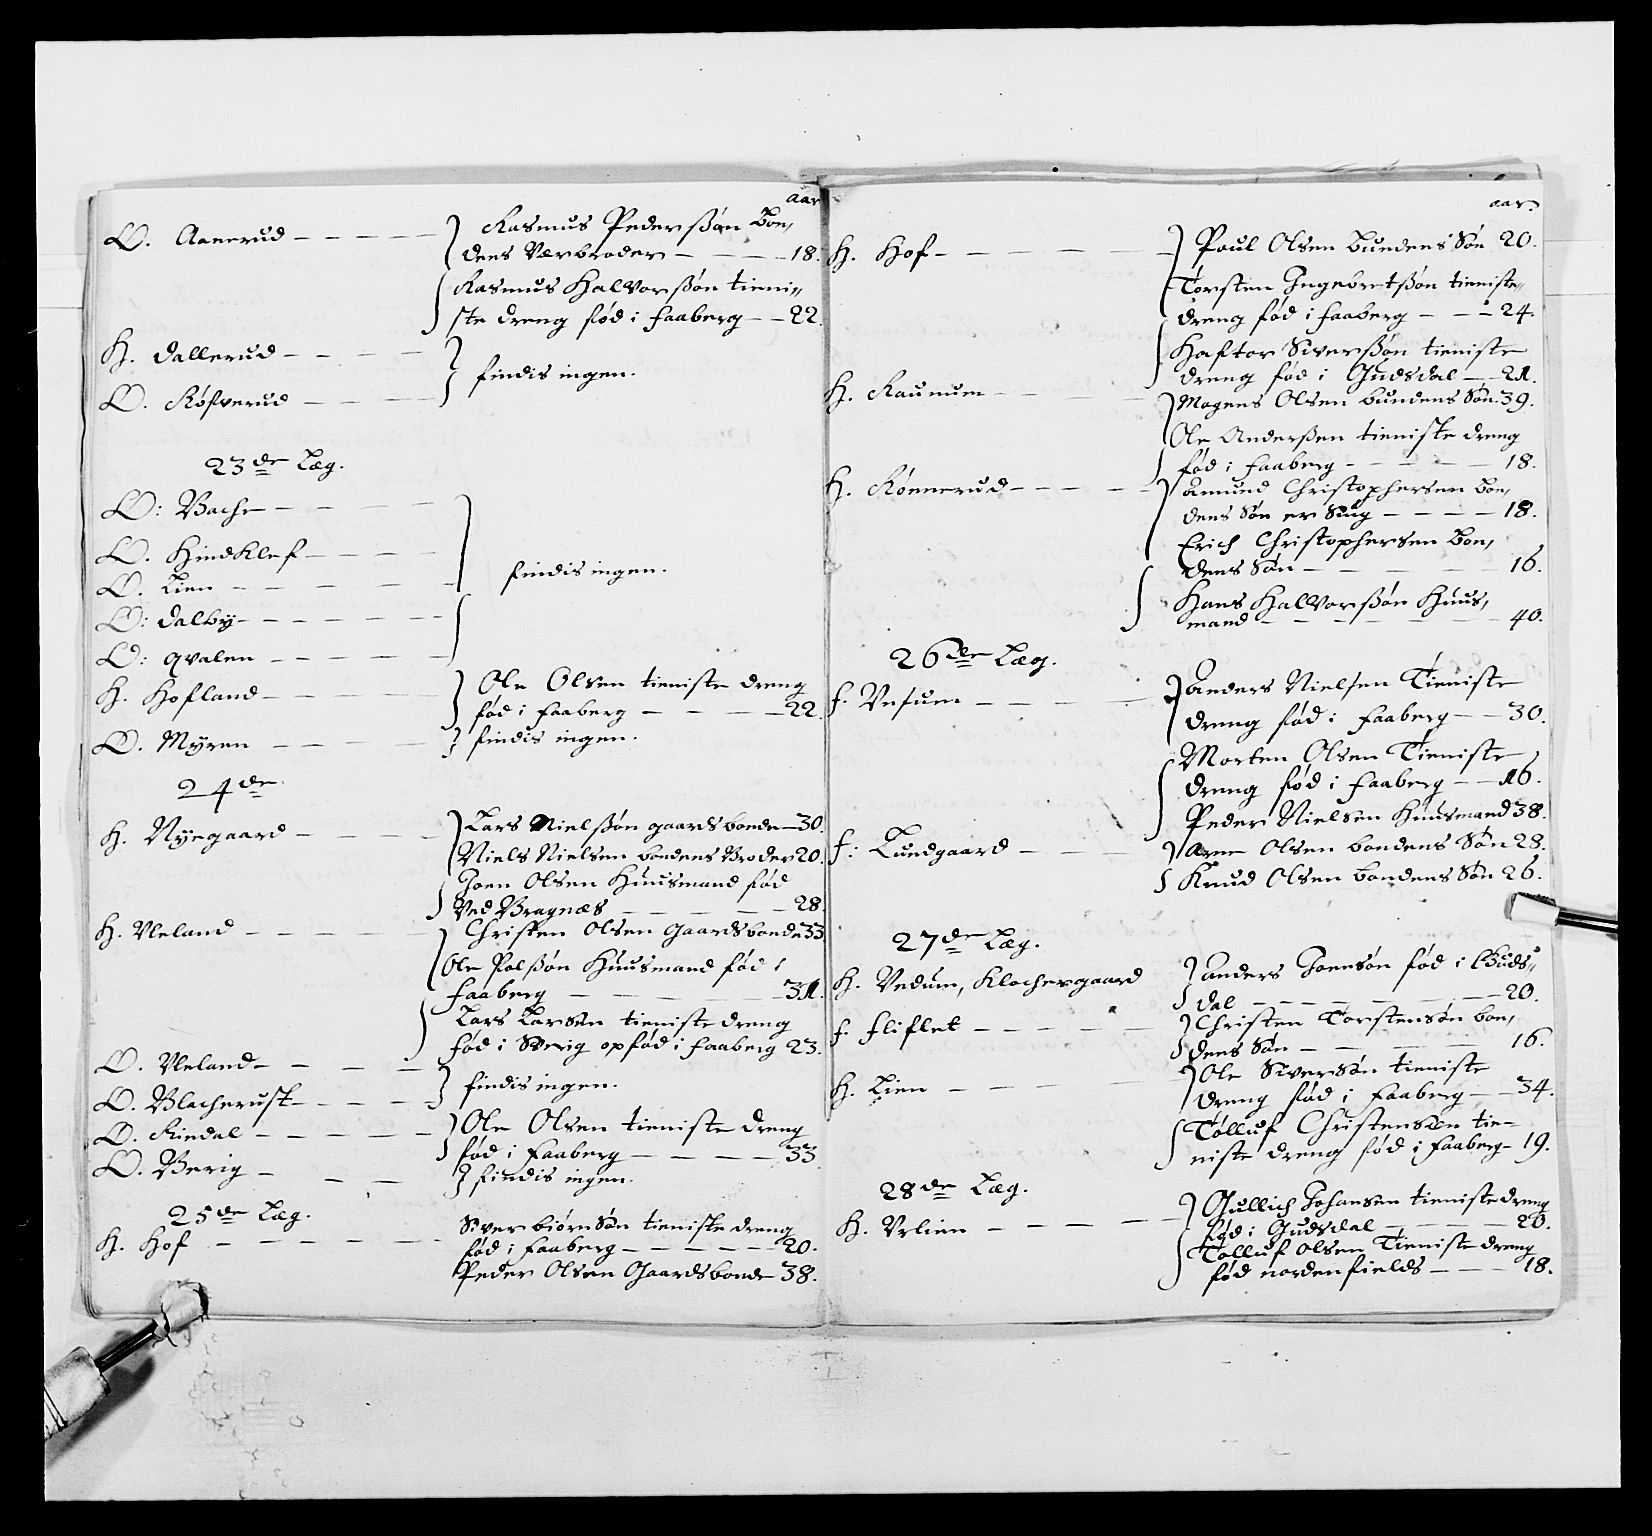 aar
O. Aanerud – – – – – Rasmus Pederßøn Bon,
dens Værbroder – – – – 18.
Rasmus Halvorßøn tieni„
ste dreng fød i faaberg – – 22.
H. Dallerud – – – –
findis ingen.
O. Røfverud – – – –
23de Læg.
O: Bache – – – –
O. Hindklef – – – –
findis ingen.
O. Lien – – – –
O: Dalby – – – – – –
O: qvalen – – – – –
H. Hofland – – – – Ole Olsen tieniste dreng
fød i faaberg – – – – – 22.
O. Myren – – – – findis ingen.
24de
H. Nyegaard – – – – Lars Nielßøn gaardsbonde – 30.
Niels Nielsen bondens Broder 20.
Joen Olsen Huusmand fød
Ved Bragnæs – – – – – 28
H. Ueland – – – – – Christen Olsen Gaardsbonde 33
Ole Polßøn Huusmand fød i
faaberg – – – – – – 31.
Lars Larsen tieniste dreng
fød i Sverig opfød i faaberg 23.
O. Ueland – – – –
findis ingen.
O. Blacherust – – – –
O. Rindal – – – – – Ole Olsen tieniste dreng
fød i Faaberg – – – – – 33
O. Berig – – – findis ingen.
25de Læg.
H. Hof – – – – – – Siver biørnsøn tieniste dreng
fød i faaberg – – – – – – 20.
Peder Olsen Gaardsbonde 38.
aar.
H. Hof – – – – – Poul Olsen bundens Søn 20.
Torsten Ingebretßøn tieniste„
dreng fød i faaberg – – – 24.
Haftor Siverßøn tieniste
dreng fød i Gudsdal – – 21.
H. Raunum – – – – Mogens Olsen bundens Søn. 39.
Ole Anderßen tieniste dreng
fød i faaberg – – – – – 18.
H. Rønnerud – – – – – Amund Christophersen Bon,
dens Søn er Siug – – – – 18.
Erich Christophersen Bon,
dens Søn – – – – – – 16.
Hans Halvorßøn Huus,
mand – – – – – – – 40.
26de Læg.
f. Vesum – – – – – Anders Nielsen Tieniste
dreng fød i faaberg – – 30.
Morten Olsen Tieniste
dreng fød i faaberg – – 16.
Peder Nielsen Huusmand 38.
f: Lundgaard – – – Arne Olsen bondens Søn 28.
Knud Olsen bondens Søn 26.
27de Læg.
H. Vedum, Klochergaard Anders Joensøn fød i Guds„
dal – – – – – – – 20.
f. fliflet – – – – – Christen Torstensøn bon,
dens Søn – – – – – 16.
H. Lien – – – – Ole Siversøn tieniste
dreng fød i Faaberg – – 34.
Tølluf Christensøn tie–
niste dreng fød i Faaberg – 19.
28de Læg.
H. Urlien – – – – – Gullich Johansen tieniste dreng
fød i Gudsdal – – – – – 20.
Tølluf Olsen Tieniste dreng
fød nordenfields – – – – 18.